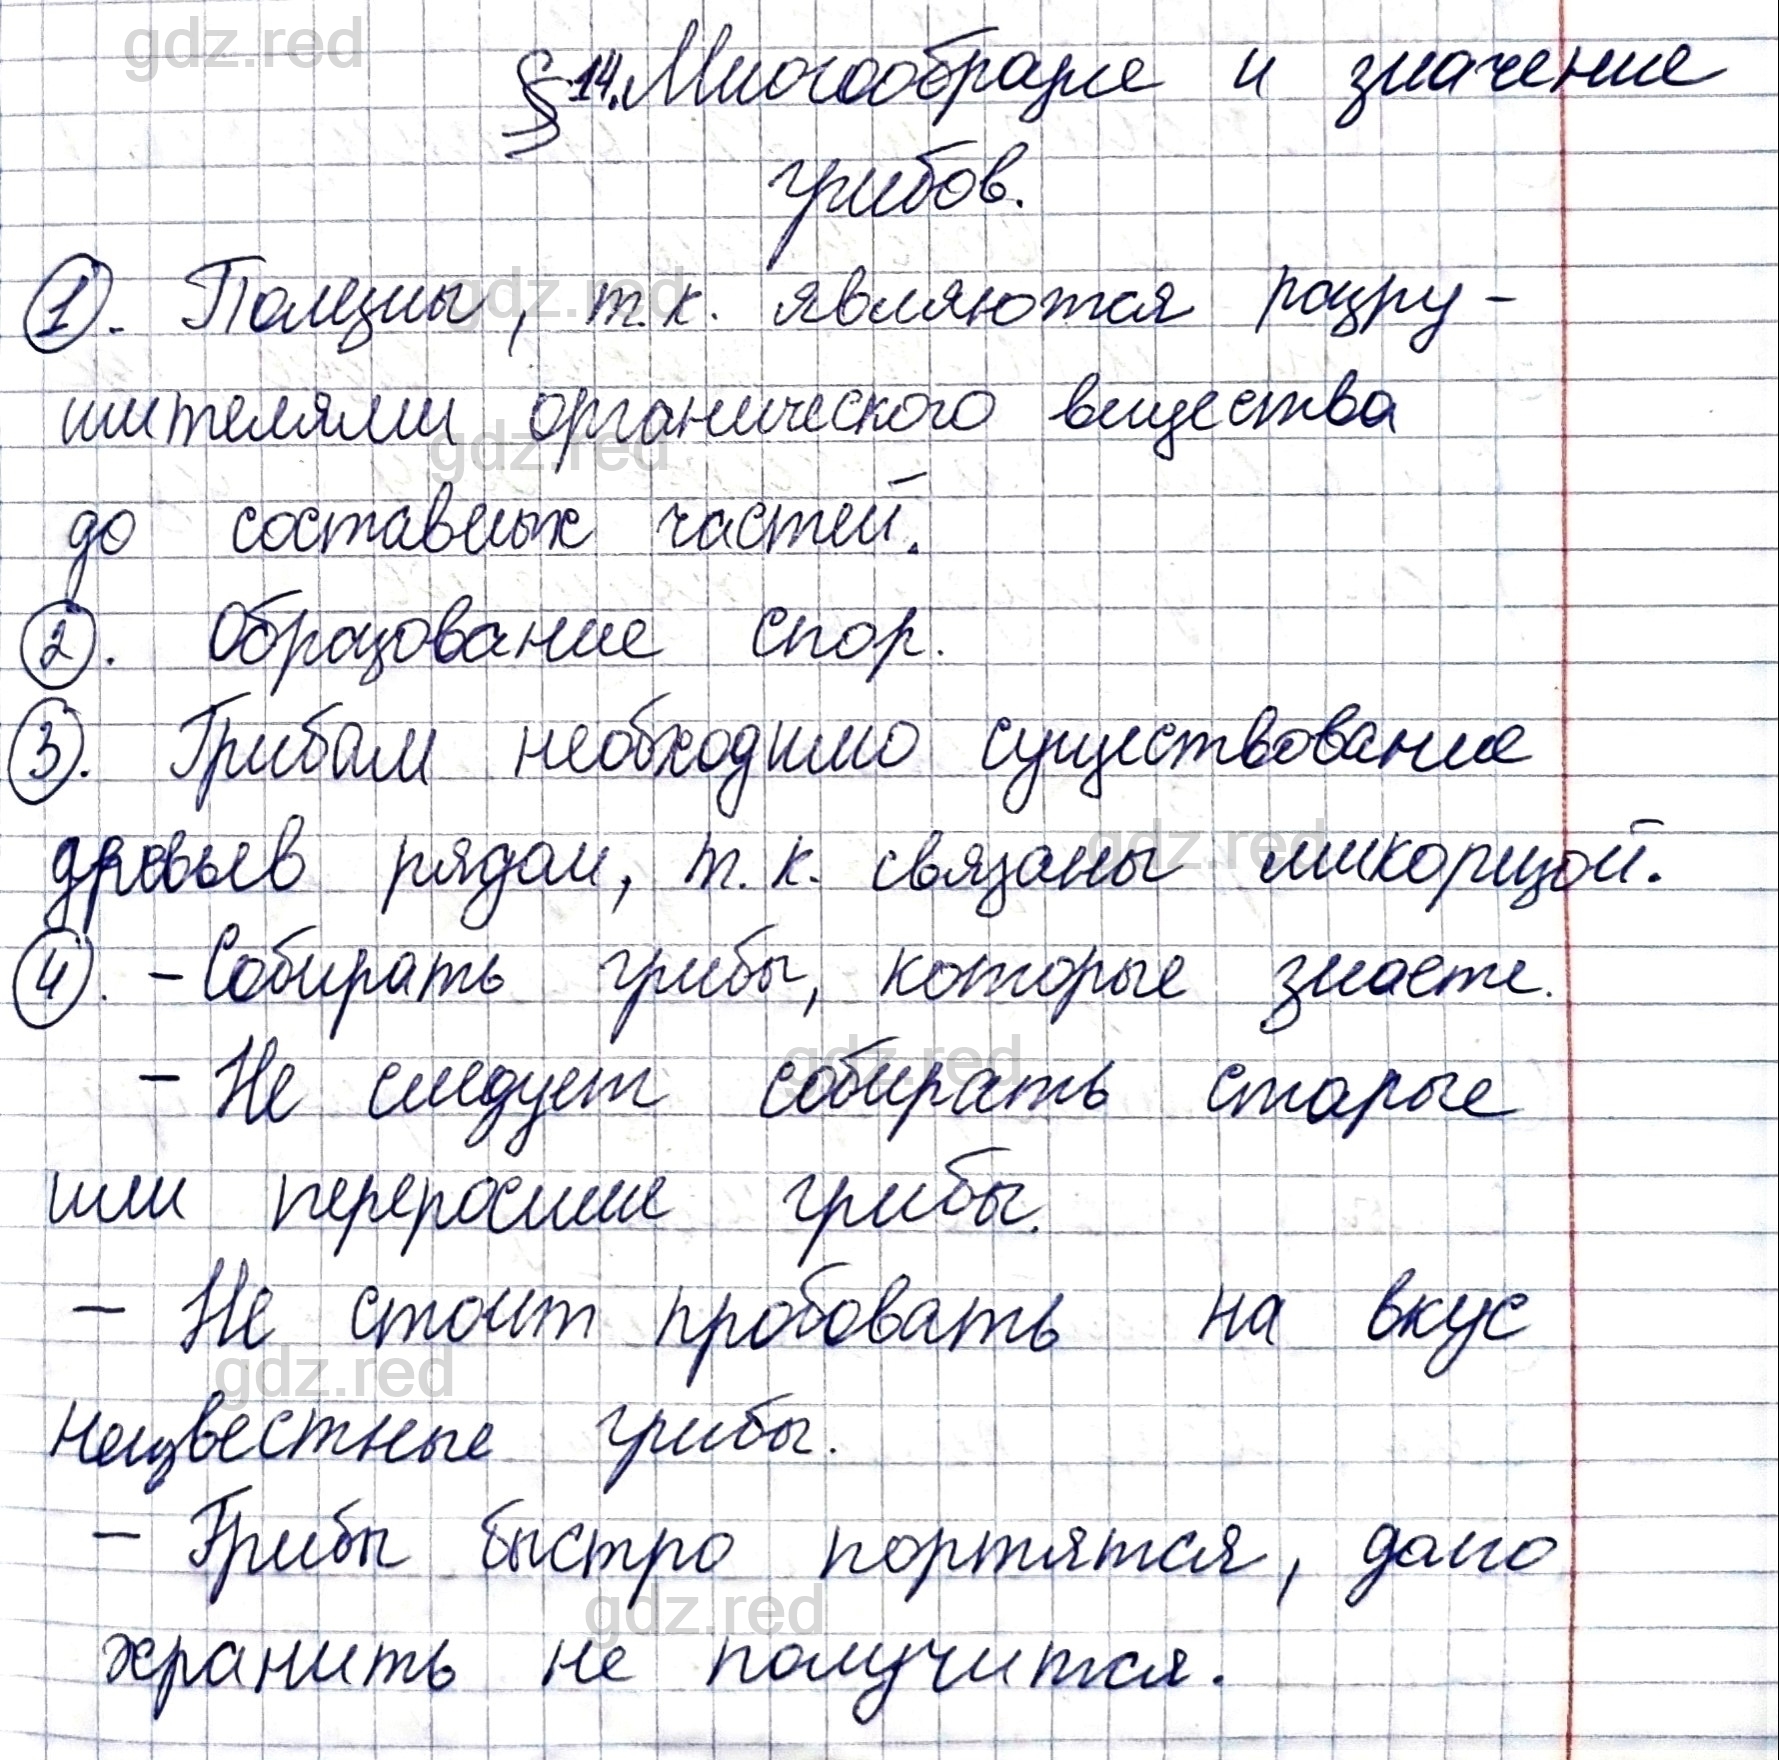 gdz.red
§ 14. Многообразие и значение
грибов.
1. Полезны, т.к. являются разру-
gdz.red
шителями органического вещества
gdz.red
до составных частей.
2. Образование спор.
3. Грибам необходимо существование
деревьев рядом, т.к. связаны микоризой.
gdz.red
4. - Собирать грибы, которые знаете.
- Не следует собирать старые
gdz.red
или переросшие грибы.
- Не стоит пробовать на вкус
gdz.red
неизвестные грибы.
- Грибы быстро портятся, долго
gdz.red
хранить не получится.